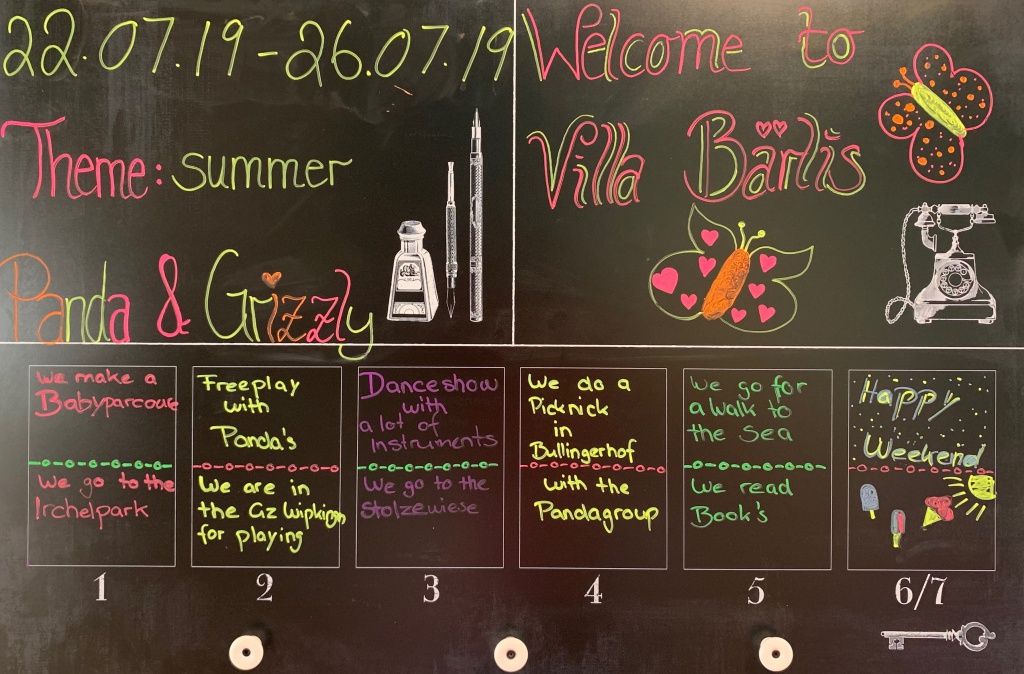 22.07.19-26.07.19
Theme: summer
Panda & Grizzly
Welcome to
Villa Bärlis
We make a
Babyparcoure
We go to the
Irchelpark
1
Freeplay
with
Panda's
We are in
the Gz Wipkingen
for playing
2
Danceshow
with
a lot of
Instruments
We go to the
Stolzewiese
3
We do a
Picknick
in
Bullingerhof
with the
Pandagroup
4
We go for
a walk to
the Sea
We read
Book's
5
Happy
Weekend
6/7